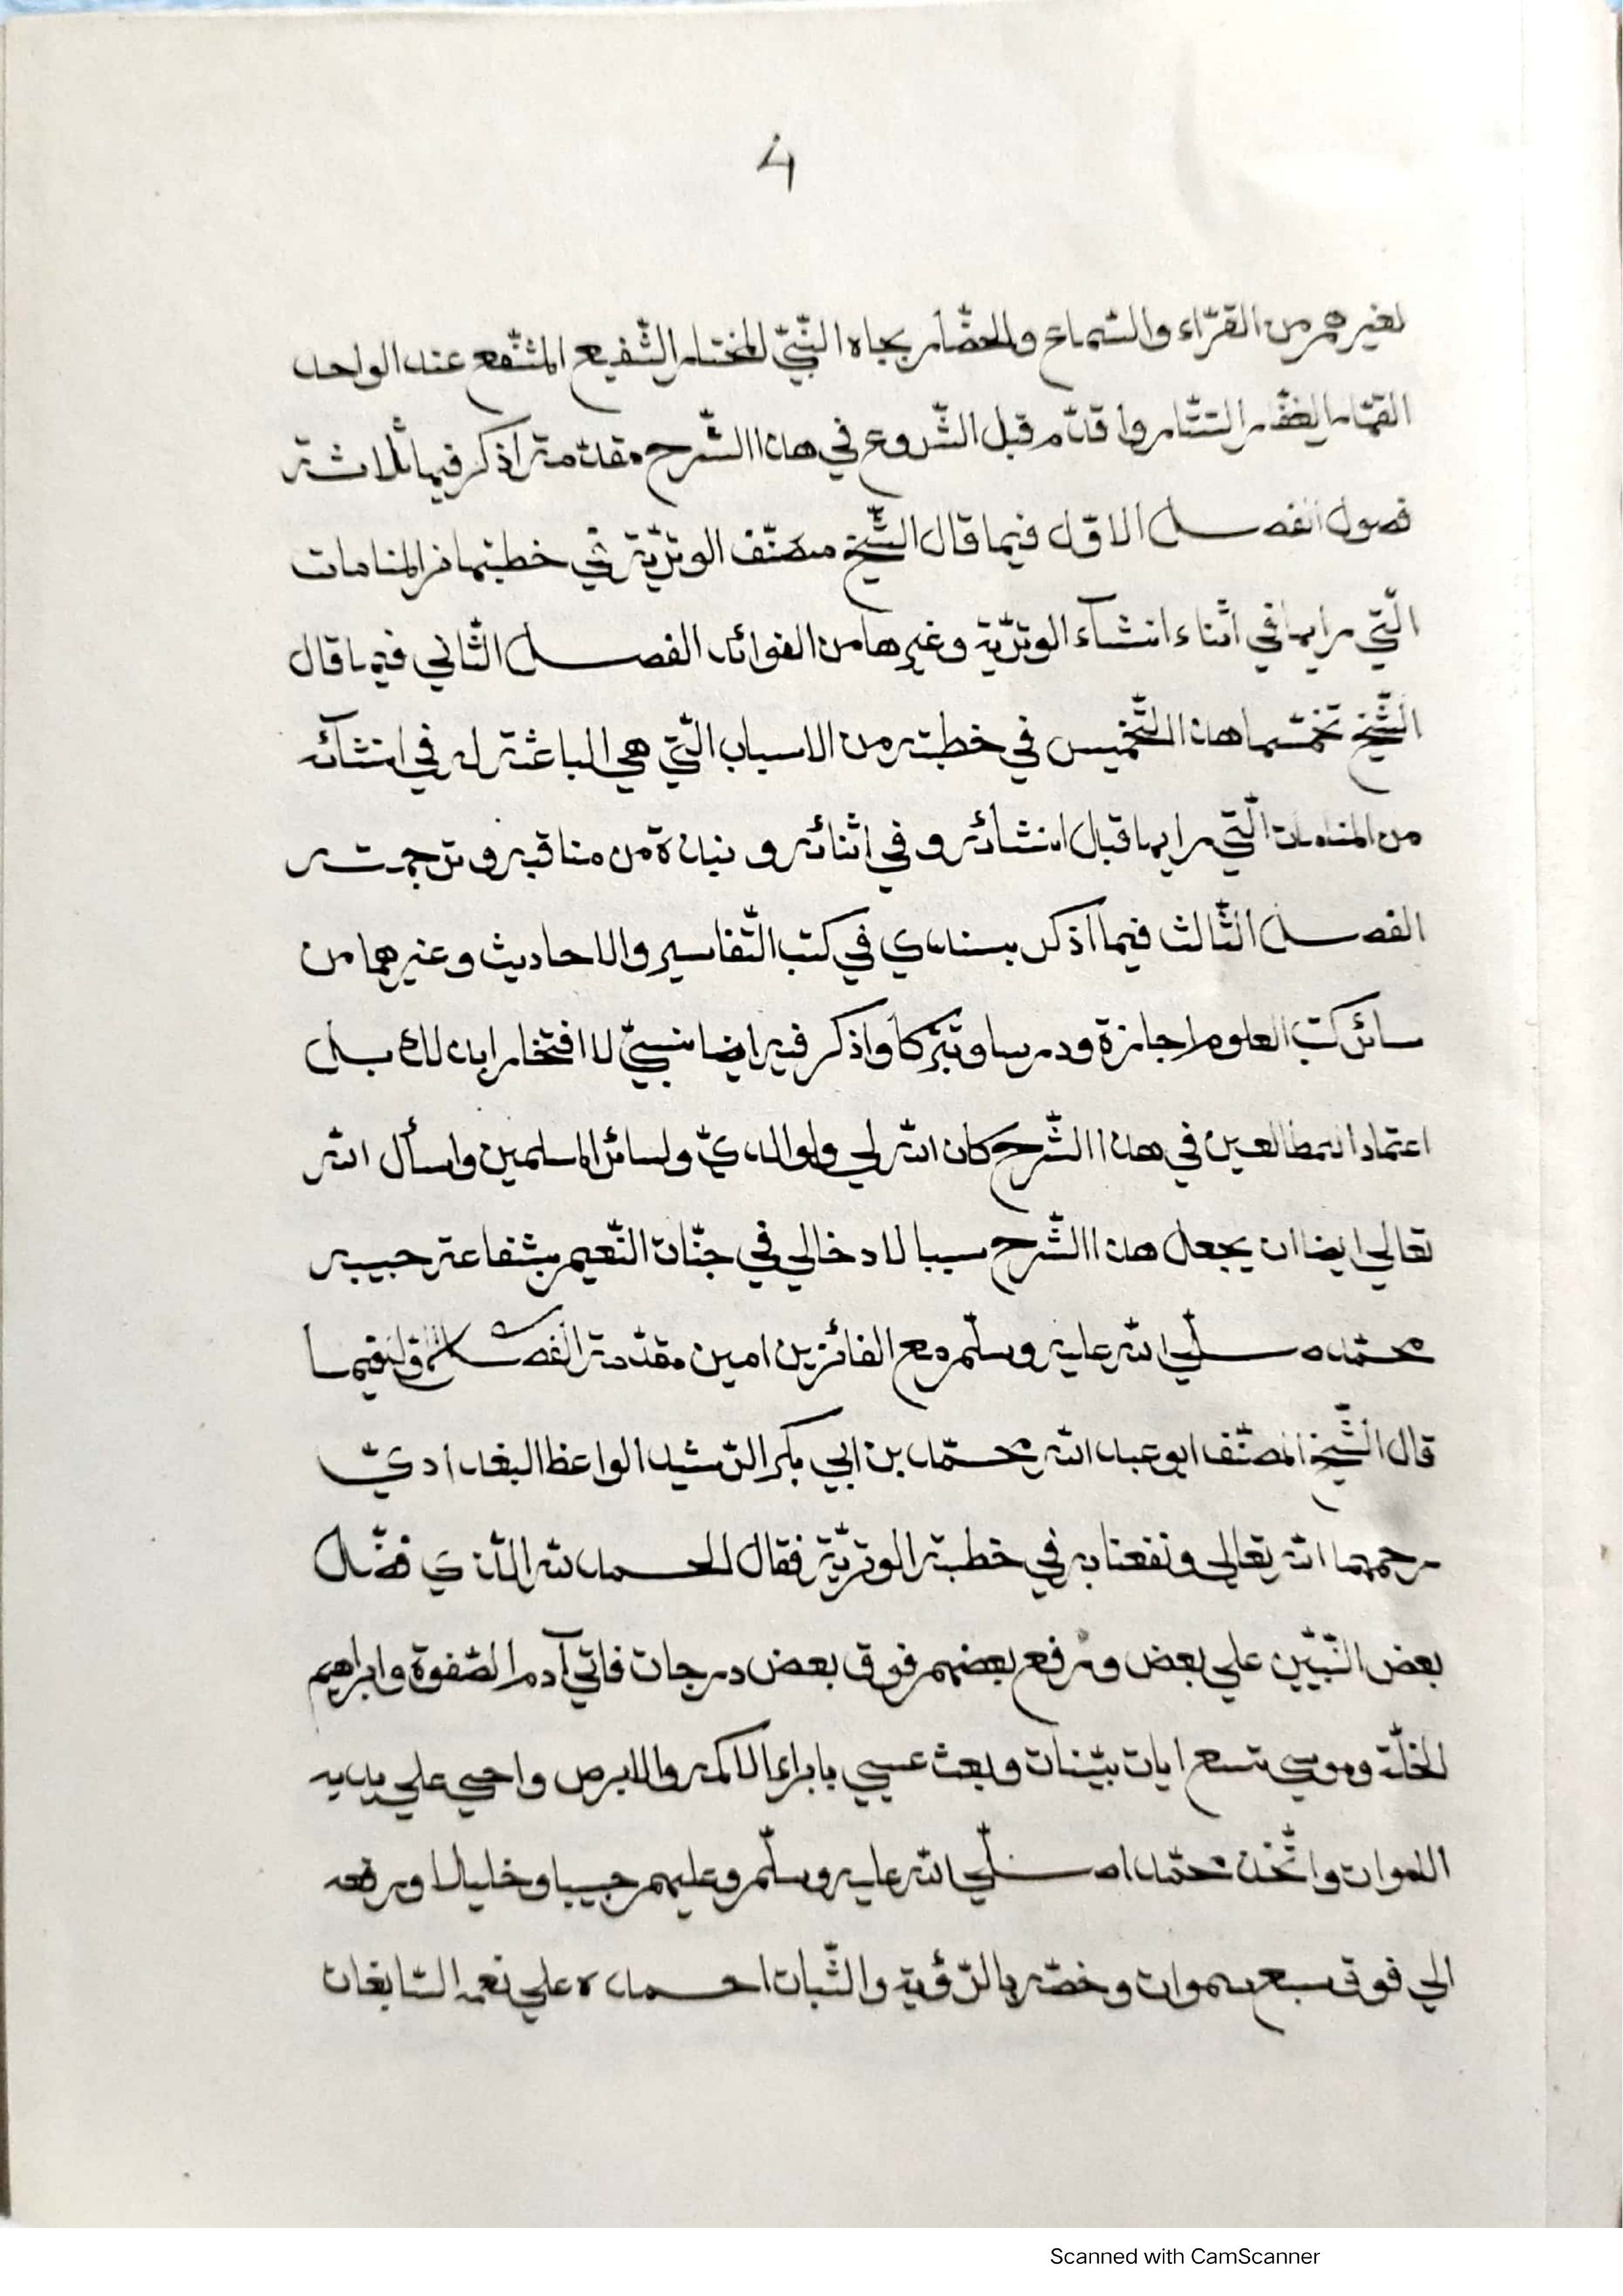 4
لغيرهم من القرّاء والسّماع والحضّار بجاه النّبيّ المختار الشّفيع المشّفع عند الواحد
القهّار الغفّار السّتّار واقدّم قبل الشّروع في هذا الشّرح مقدّمة اذكر فيها ثلاثة
فصول الفصل الاوّل فيما قال الشّيخ مصنّف الوتريّة في خطبتها من المنامات
الّتي رايها في اثناء انشآء الوتريّة وغيرها من الفوائد الفصل الثّاني فيما قال
الشّيخ مخمّسها هذا التّخميس في خطبته من الاسباب الّتي هي الباعثة له في انشآئه
من المنامات الّتي رايها قبل انشائه و في اثنائه و نبذة من مناقبه وترجمته
الفصل الثّالث فيما اذكر بسندي في كتب التّفاسير والاحاديث وغيرهما من
سائر كتب العلوم اجازة ودرسا وتبرّكا واذكر فيه ايضا نسبيّ لا افتخارا بذلك بل
اعتمادا للمطالعين في هذا الشّرح كان الله لي ولوالديّ ولسائر المسلمين واسأل الله
تعالي ايضا ان يجعل هذا الشّرح سببا لادخالي في جنّات النّعيم بشفاعة حبيبه
محمّد صلّي الله عليه وسلّم مع الفائزين امين مقدّمة الفصل الاوّل فيما
قال الشّيخ المصنّف ابو عبد الله محمّد بن ابي بكر الرّشيد الواعظ البغداديّ
رحمهما الله تعالي ونفعنا به في خطبة الوتريّة فقال الحمد لله الّذي فضّل
بعض النّبيّين علي بعض ورفع بعضهم فوق بعض درجات فاتي آدم الصّفوة وابراهيم
الخلّة وموسي تسع ايات بيّنات وبعث عيسي بابراء الاكمه والابرص واحيي علي يديه
الاموات واتّخذ محمّدا صلّي الله عليه وسلّم وعليهم حبيبا وخليلا ورفعه
الي فوق سبع سموات وخصّه بالرّؤية والثّبات احمده علي نعمه السّابغات
Scanned with CamScanner